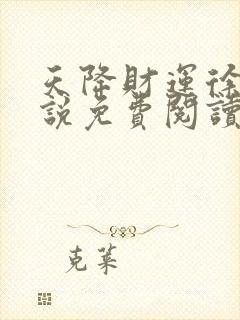 天降財運徐
説免費閱讀
克萊